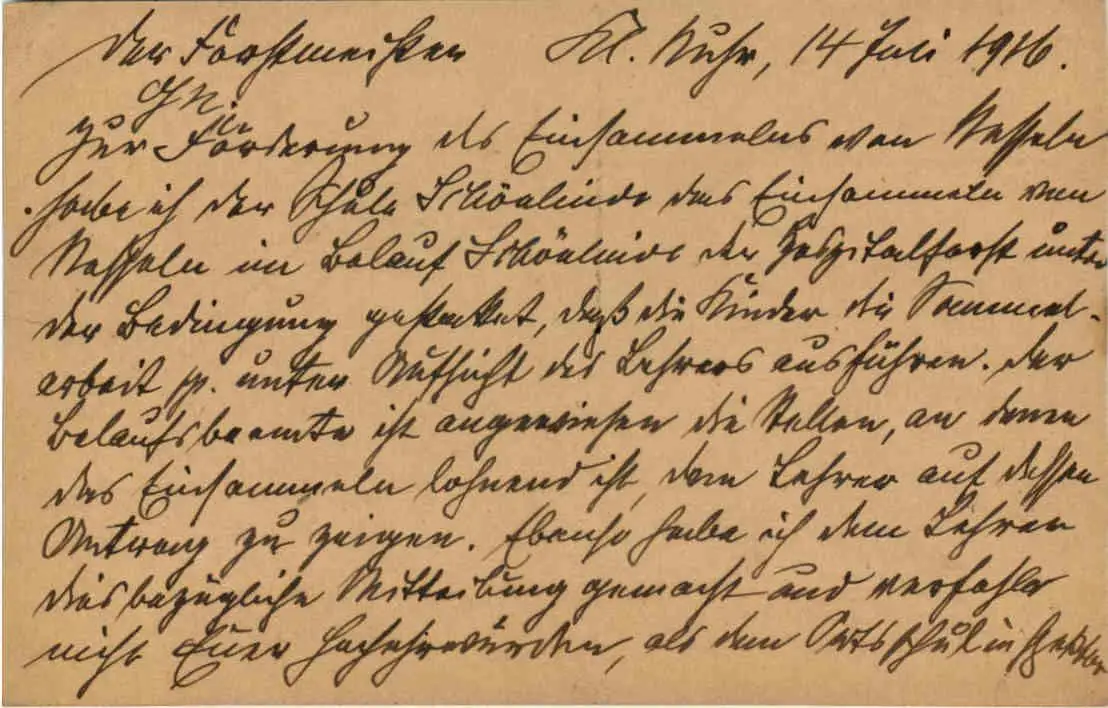 Der Forstmeister Kl. Nuhr, 14 Juli 1916.
Zur Förderung des Einsammelns von Nesseln
habe ich der Schule Schönlinde das Einsammeln von
Nesseln im Belauf Schönlinde der Hospitalforst unter
der Bedingung gestattet, daß die Kinder die Sammel-
arbeit pp. unter Aufsicht des Lehrers ausführen. Der
Belaufsbeamte ist angewiesen die Stellen, an denen
das Einsammeln lohnend ist, dem Lehrer auf dessen
Antrag zu zeigen. Ebenso habe ich dem Lehrer
diesbezügliche Mitteilung gemacht und verfehle
nicht Euer Hochehrwürden, als dem Ortsschulinspektor